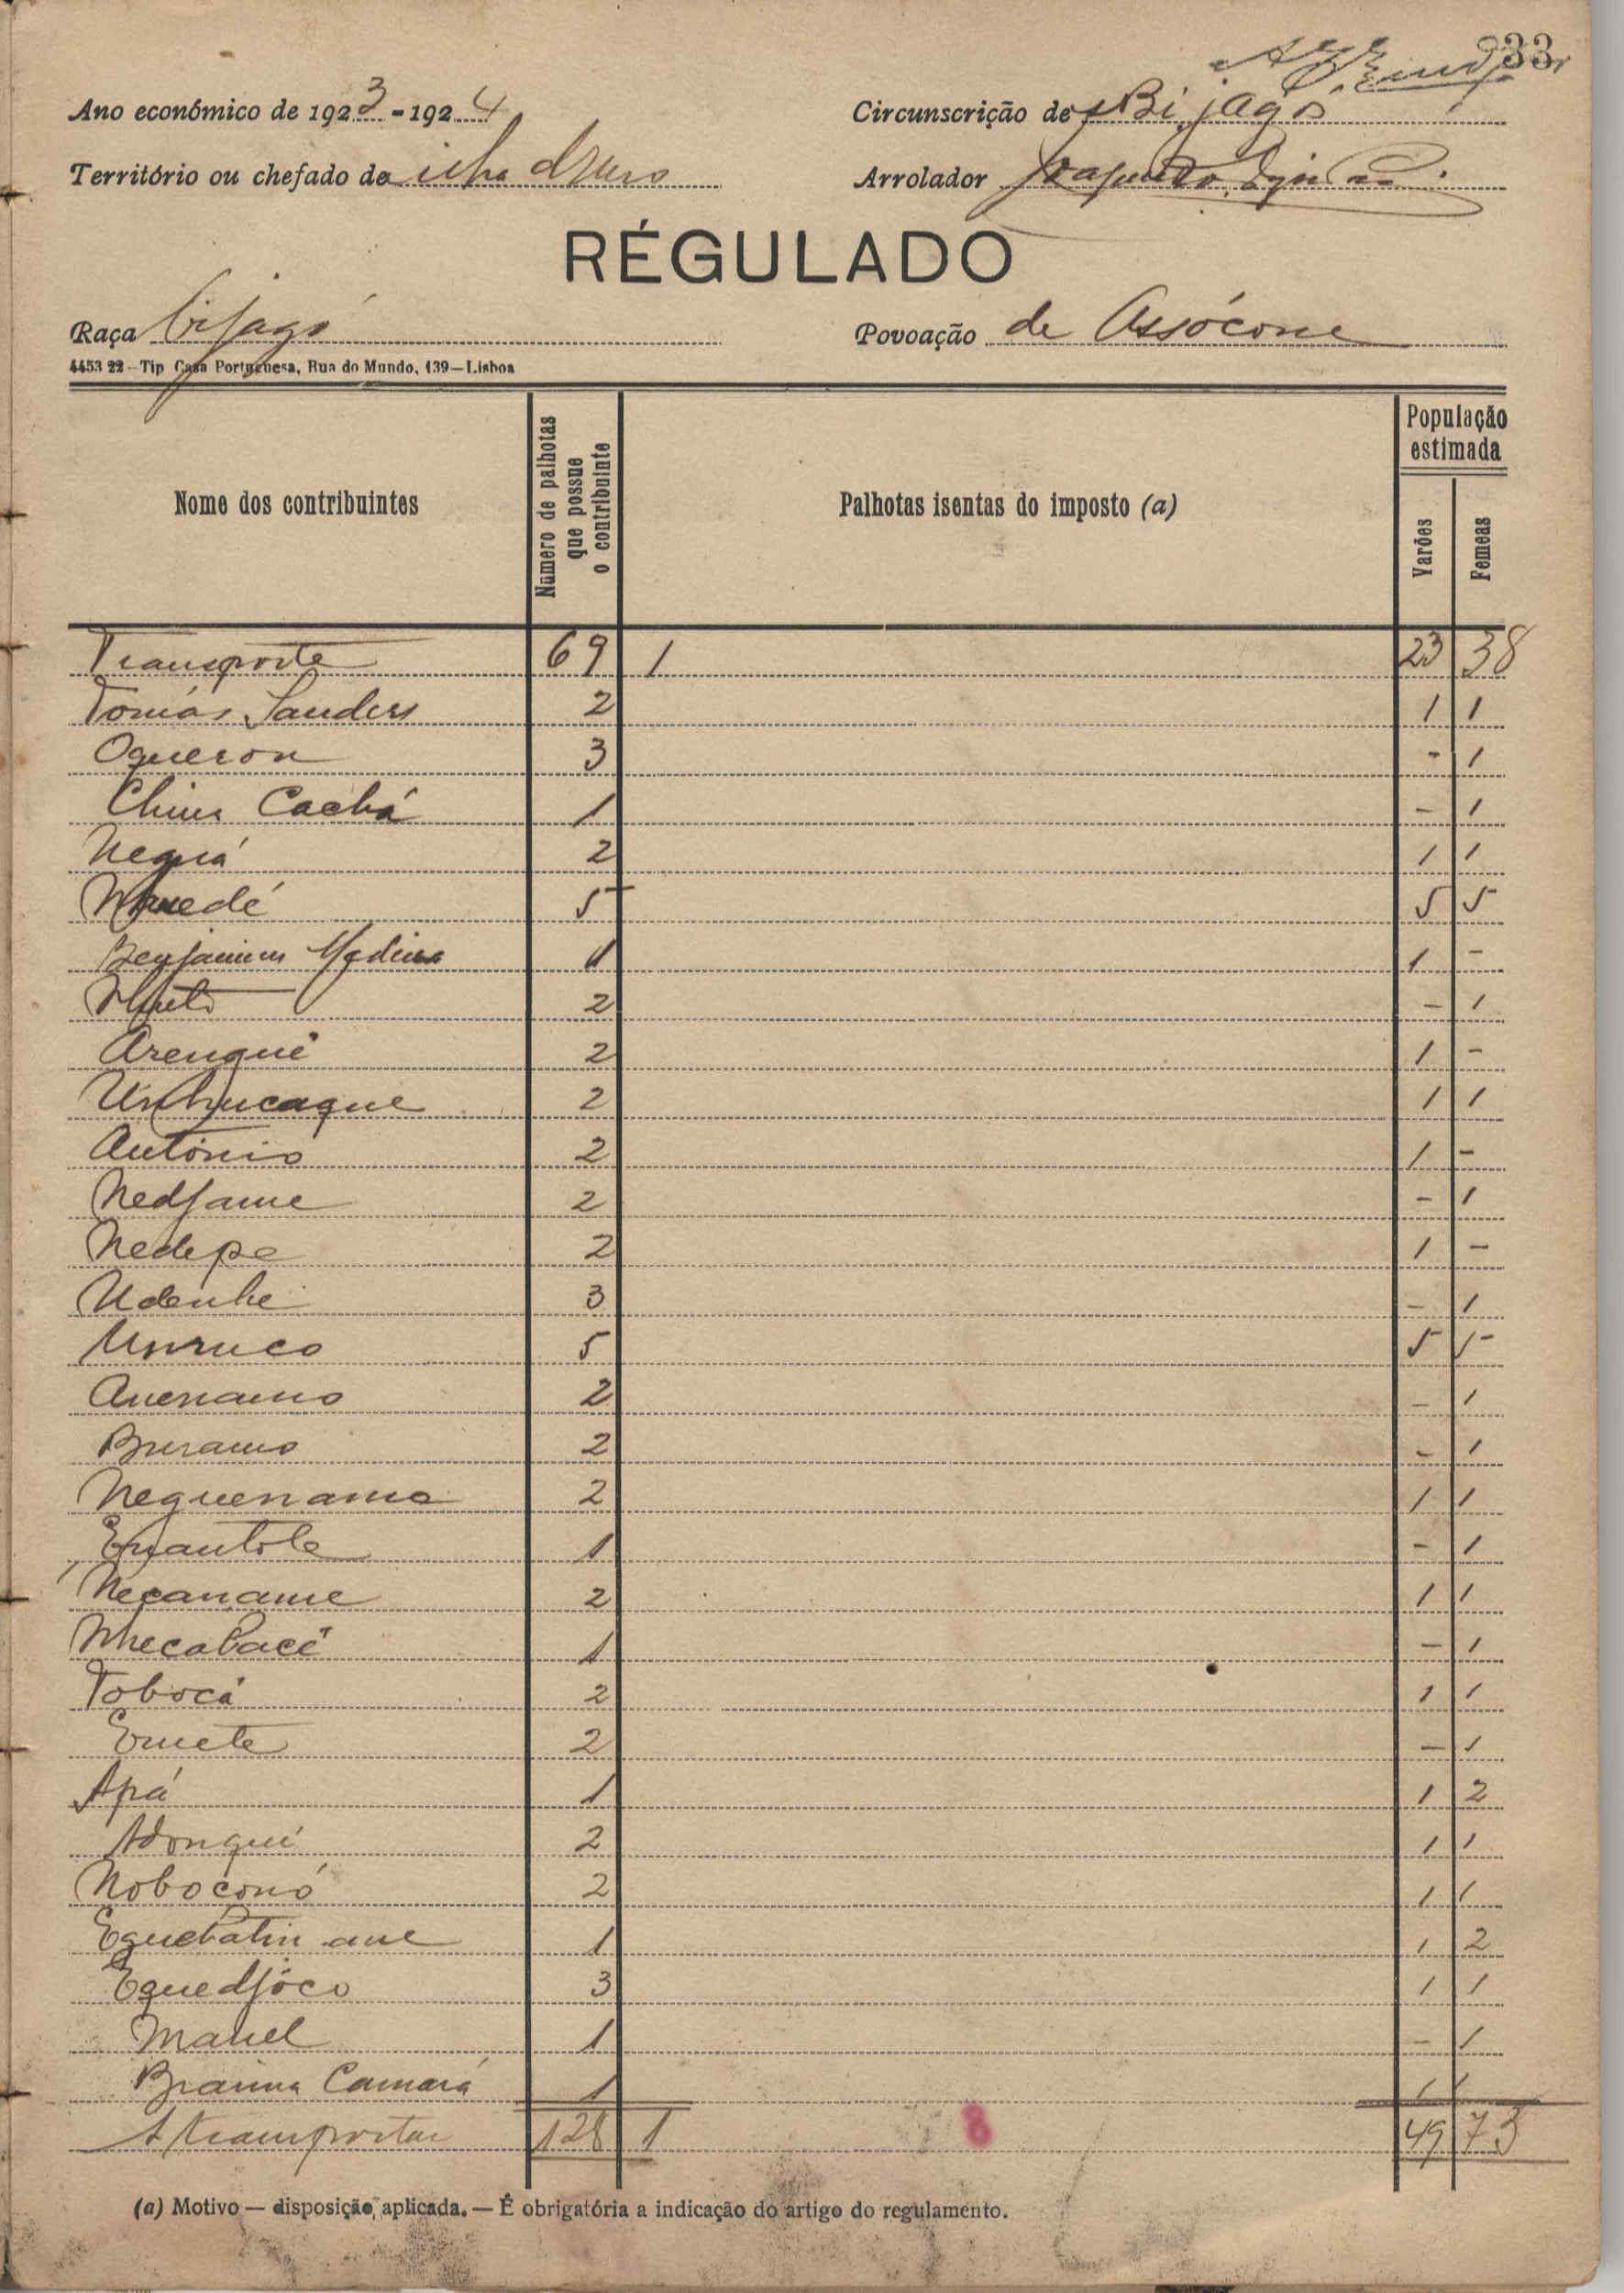 33
Ano económico de 1923-1924 Circunscrição de Bijagós
Território ou chefado da ilha Arrolador
RÉGULADO
Raça bijagó Povoação de Assócone
4453 22 - Tip Casa Portuguesa, Rua do Mundo, 139 — Lisboa
Nome dos contribuintes Número de palhotas que possue o contribuinte Palhotas isentas do imposto (a) População estimada Varões Femeas
Transporte 69 1 23 38
Tomás Sanders 2 1 1
Oqueron 3 - 1
Cachá 1 - 1
Negná 2 1 1
5 5 5
Benjamim Medina 1 1 -
2 - 1
Arenquê 2 1 -
2 1 1
António 2 1 -
Nedjame 2 - 1
Nedepe 2 1 -
Udenhe 3 - 1
Unruco 5 5 5
Auenamo 2 - 1
Buramo 2 - 1
Neguenamo 2 1 1
1 - 1
Necaname 2 1 1
1 - 1
Tobocá 2 1 1
Ernete 2 - 1
Apá 1 1 2
Adonqui 2 1 1
Noboconó 2 1 1
1 1 2
Equedjóco 3 1 1
Manel 1 - 1
Braima Camará 1 1 1
A transportar 128 1 8 49 73
(a) Motivo — disposição aplicada. — É obrigatória a indicação do artigo do regulamento.